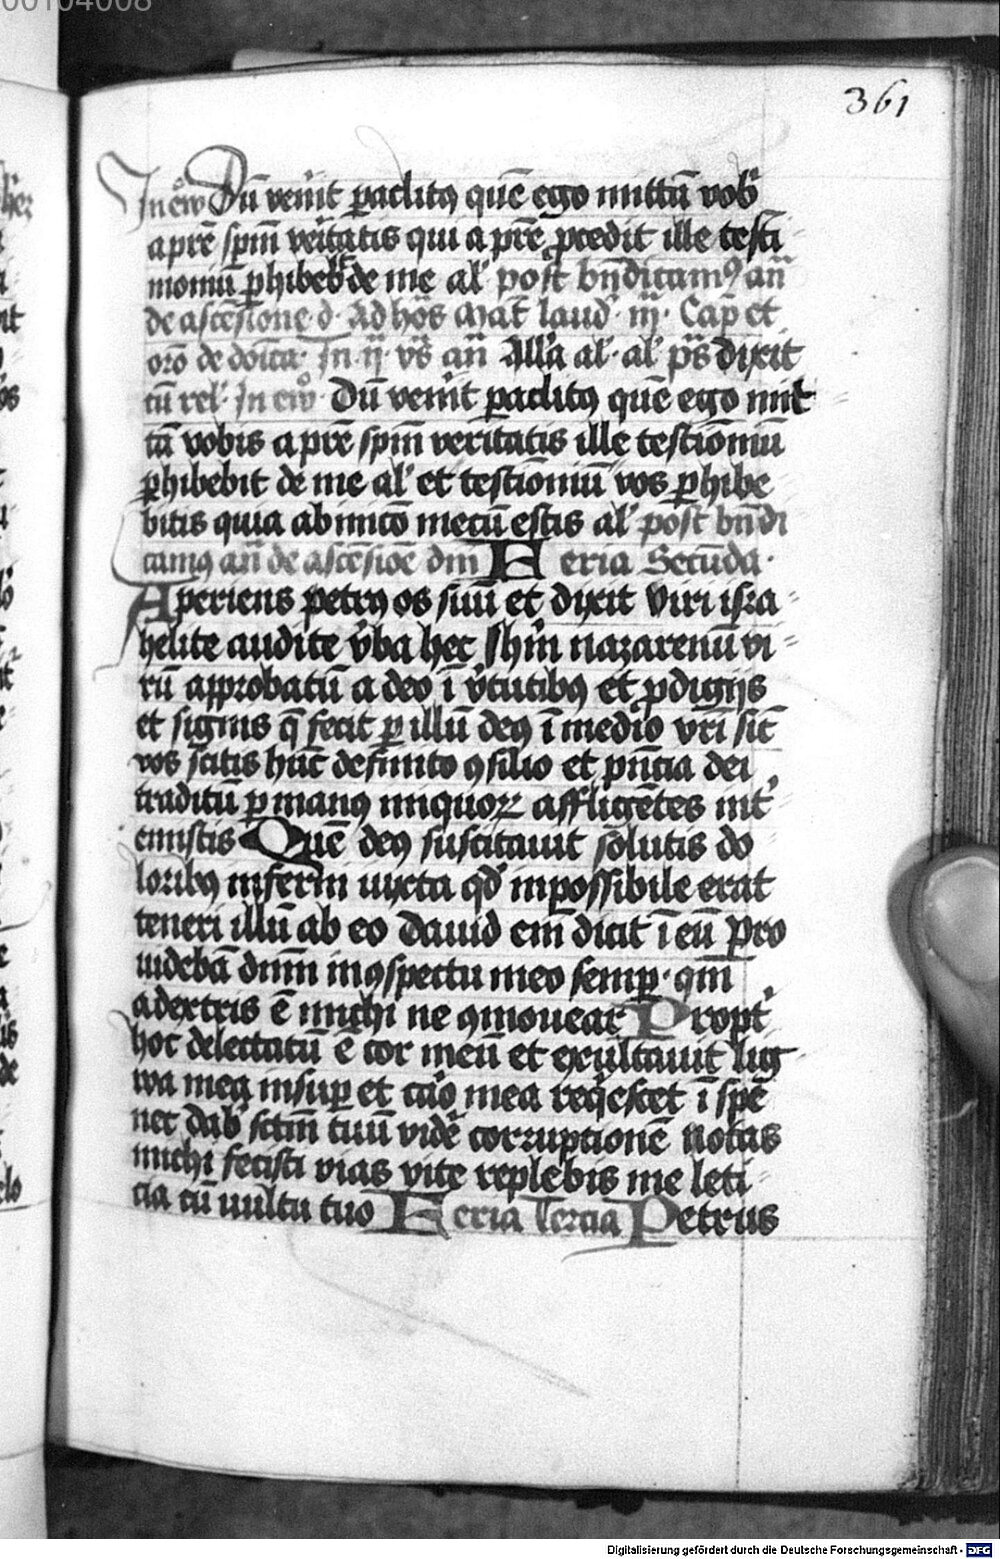 00104008
361
In ew̄ Dū venīt p̱aclitꝯ quē ego mittā vob̄
a pr̄e sp̄m veritatis qui a pr̄e p̱cedit ille testi
moniū p̱hibeb̄ de me al̄ post bn̄dicamꝯ an̄
de ascensione d. Ad ho͞s Mat̄ laud̄ . iij . Cap̄ et
oro͞ de do͞ica . In . ij . vs̄ an̄ All'a al̄ . al̄ ps̄ Dixit
cū rel̄ . In ew̄ . Dū venīt p̱aclitꝯ quē ego mit
tā vobis a pr̄e sp̄m veritatis ille testi͞oniū
p̱hibebit de me al̄ et testi͞oniū vos p̱hibe
bitis quia ab inicō mecū estis al̄ post bn̄di
camꝯ an̄ de asce͞sio͞e dn̄i Feria Secūda .
Aperiens petrꝯ os suū et dixit Viri isra
helite audite v̄ba hec Ihm̄ nazarenū vi
rū approbatū a deo ī v̄tutibꝯ et p̱digijs
et signis q̄ fecit p̱ illū deꝯ ī medio vr̄i sic̄
vos scitis hūc definito ꝯsilio et pn̄tia dei
traditū p̱ manꝯ iniquoꝝ affligētes int̄
emistis Quē deꝯ suscitauit solutis do
loribꝯ infer̄m iuxta qd̄ inpossibile erat
teneri illū ab eo Dauid em̄ dicit ī eū Pro
uidebā dn̄m in ꝯspectu meo semp̱ . qm̄
a dextris ē michi ne ꝯmouear Propt̄
hoc delectatū ē cor meū et exultauit lig
wa mea insup̱ et caō mea req̄escet ī spē
nec dab̄ sct̄m tuū vider̄ corruptionē Notas
michi fecisti vias vite replebis me leti
cia cū uultu tuo Feria Tercia Petrus
Digitalisierung gefördert durch die Deutsche Forschungsgemeinschaft - DFG